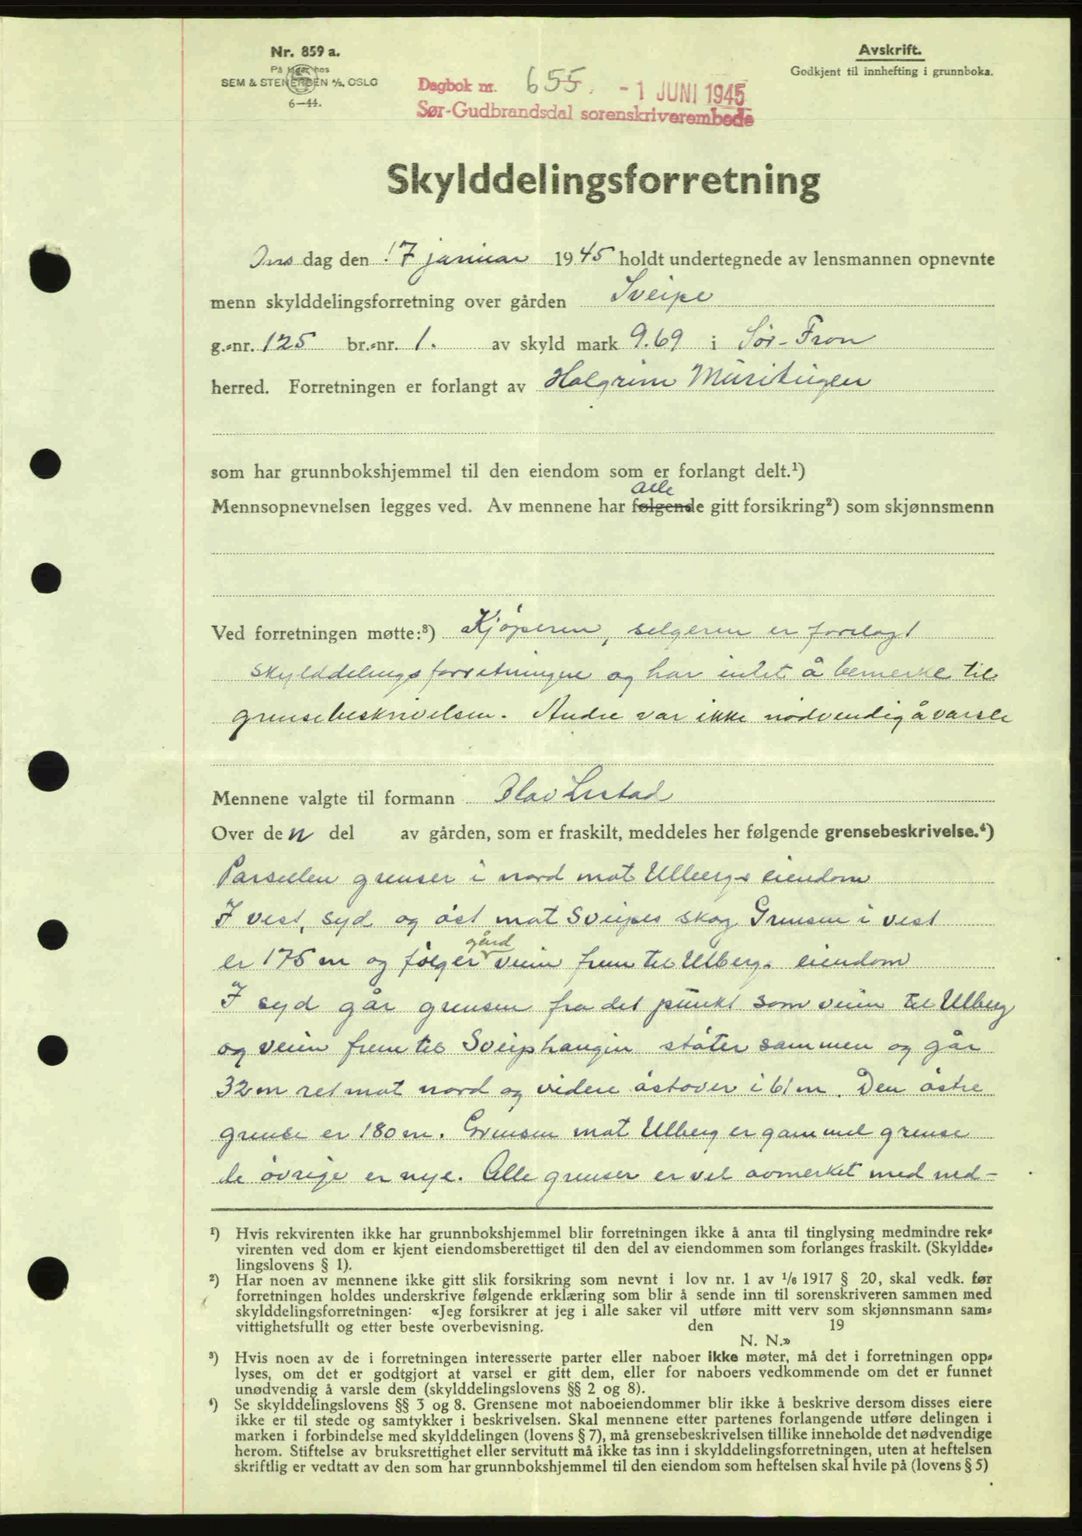 Nr. 859 a.
På lager hos
SEM & STENERSEN A/S, OSLO
6—44.
Avskrift.
Godkjent til innhefting i grunnboka.
Dagbok nr. 655. - 1 JUNI 1945
Sør-Gudbrandsdal sorenskriverembede
Skylddelingsforretning
Ons dag den 17 januar 1945 holdt undertegnede av lensmannen opnevnte
menn skylddelingsforretning over gården Sveipe
g.-nr. 125 br.-nr. 1. av skyld mark 9.69 i Sør-Fron
herred. Forretningen er forlangt av Halgrim
som har grunnbokshjemmel til den eiendom som er forlangt delt.¹)
alle
Mennsopnevnelsen legges ved. Av mennene har følgende gitt forsikring²) som skjønnsmenn
Ved forretningen møtte:³) Kjøperen, selgeren er forelagt
skylddelingsforretningen og har intet å bemerke til
grensebeskrivelsen. Andre var ikke nødvendig å varsle
Mennene valgte til formann Olav Listad
Over den del av gården, som er fraskilt, meddeles her følgende grensebeskrivelse.⁴)
Parsellen grenser i nord mot Ulbergs eiendom
I vest, syd og øst mot Sveipes skog Grensen i vest
gård
er 175 m og følger veien frem til Ulbergs eiendom
I syd går grensen fra det punkt som veien til Ulberg
og veien frem til Sveiphaugen støter sammen og går
32 m ret mot nord og videre østover i 61 m. Den østre
grense er 180 m. Grensen mot Ulberg er gammel grense
de øvrige er nye. Alle grenser er vel avmerket med ned-
¹) Hvis rekvirenten ikke har grunnbokshjemmel blir forretningen ikke å anta til tinglysing medmindre rek-
virenten ved dom er kjent eiendomsberettiget til den del av eiendommen som forlanges fraskilt. (Skyldde-
lingslovens § 1).
²) Har noen av mennene ikke gitt slik forsikring som nevnt i lov nr. 1 av 1/6 1917 § 20, skal vedk. før
forretningen holdes underskrive følgende erklæring som blir å sende inn til sorenskriveren sammen med
skylddelingsforretningen: «Jeg forsikrer at jeg i alle saker vil utføre mitt verv som skjønnsmann sam-
vittighetsfullt og etter beste overbevisning. den 19
N. N.»
³) Hvis noen av de i forretningen interesserte parter eller naboer ikke møter, må det i forretningen opp-
lyses, om det er godtgjort at varsel er gitt dem, eller for naboers vedkommende om det er funnet
unødvendig å varsle dem (skylddelingslovens §§ 2 og 8).
⁴) Se skylddelingslovens §§ 3 og 8. Grensene mot naboeiendommer blir ikke å beskrive dersom disses eiere
ikke er til stede og samtykker i beskrivelsen. Skal mennene etter partenes forlangende utføre delingen i
marken i forbindelse med skylddelingen (lovens § 7), må grensebeskrivelsen tillike inneholde det nødvendige
herom. Stiftelse av bruksrettighet eller servitutt må ikke tas inn i skylddelingsforretningen, uten at heftelsen
skriftlig er vedtatt av den som har grunnbokshjemmel til den eiendom som heftelsen skal hvile på (lovens § 5)